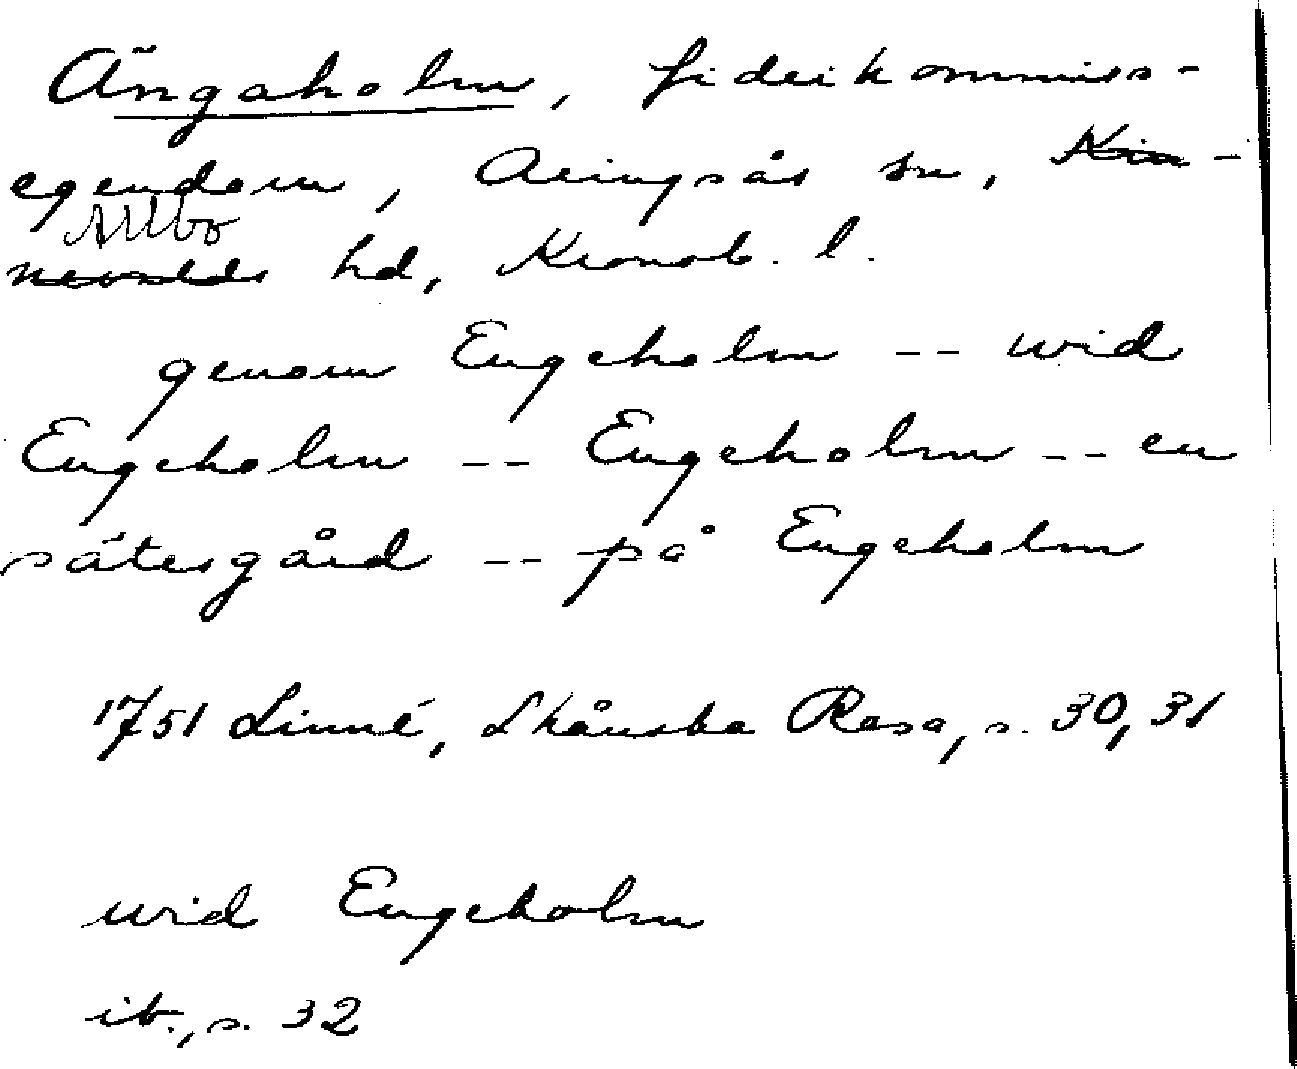 Ängaholm, fideikommiss-
egendom, Aringsås sn, Kin-
Allbo
nevalds hd, Kronob. l.
genom Engeholm -- wid
Engeholm -- Engeholm -- en
sätesgård -- på Engeholm
1751 Linné, Skånska Resa, s. 30, 31
wid Engeholm
ib., s. 32